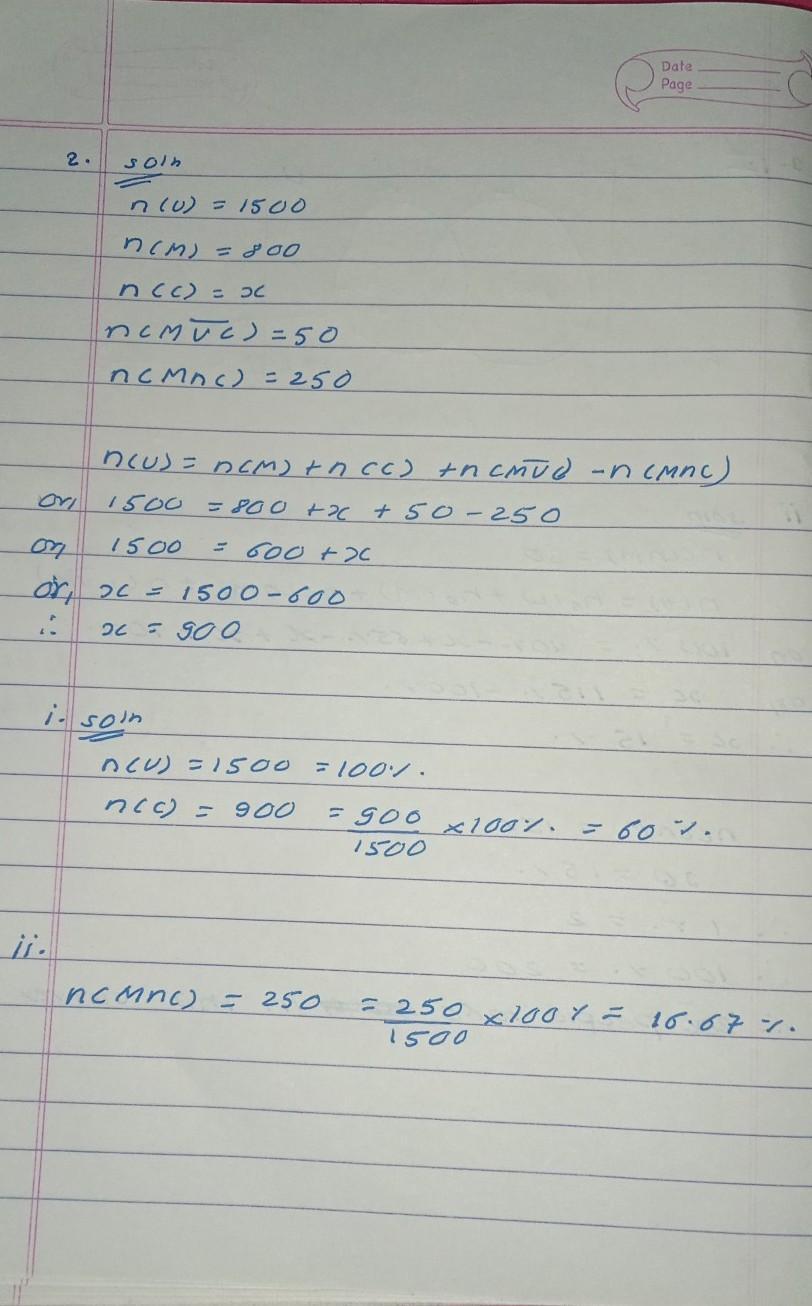 Date
Page
2. soln
n(U) = 1500
n(M) = 800
n(C) = x
n(M̅U̅C̅) = 50
n(MnC) = 250
n(U) = n(M) + n(C) + n(M̅U̅C̅) - n(MnC)
or, 1500 = 800 + x + 50 - 250
or, 1500 = 600 + x
or, x = 1500 - 600
∴ x = 900
i. soln
n(U) = 1500 = 100%.
n(C) = 900 = 900/1500 × 100%. = 60%.
ii.
n(MnC) = 250 = 250/1500 × 100% = 16.67%.